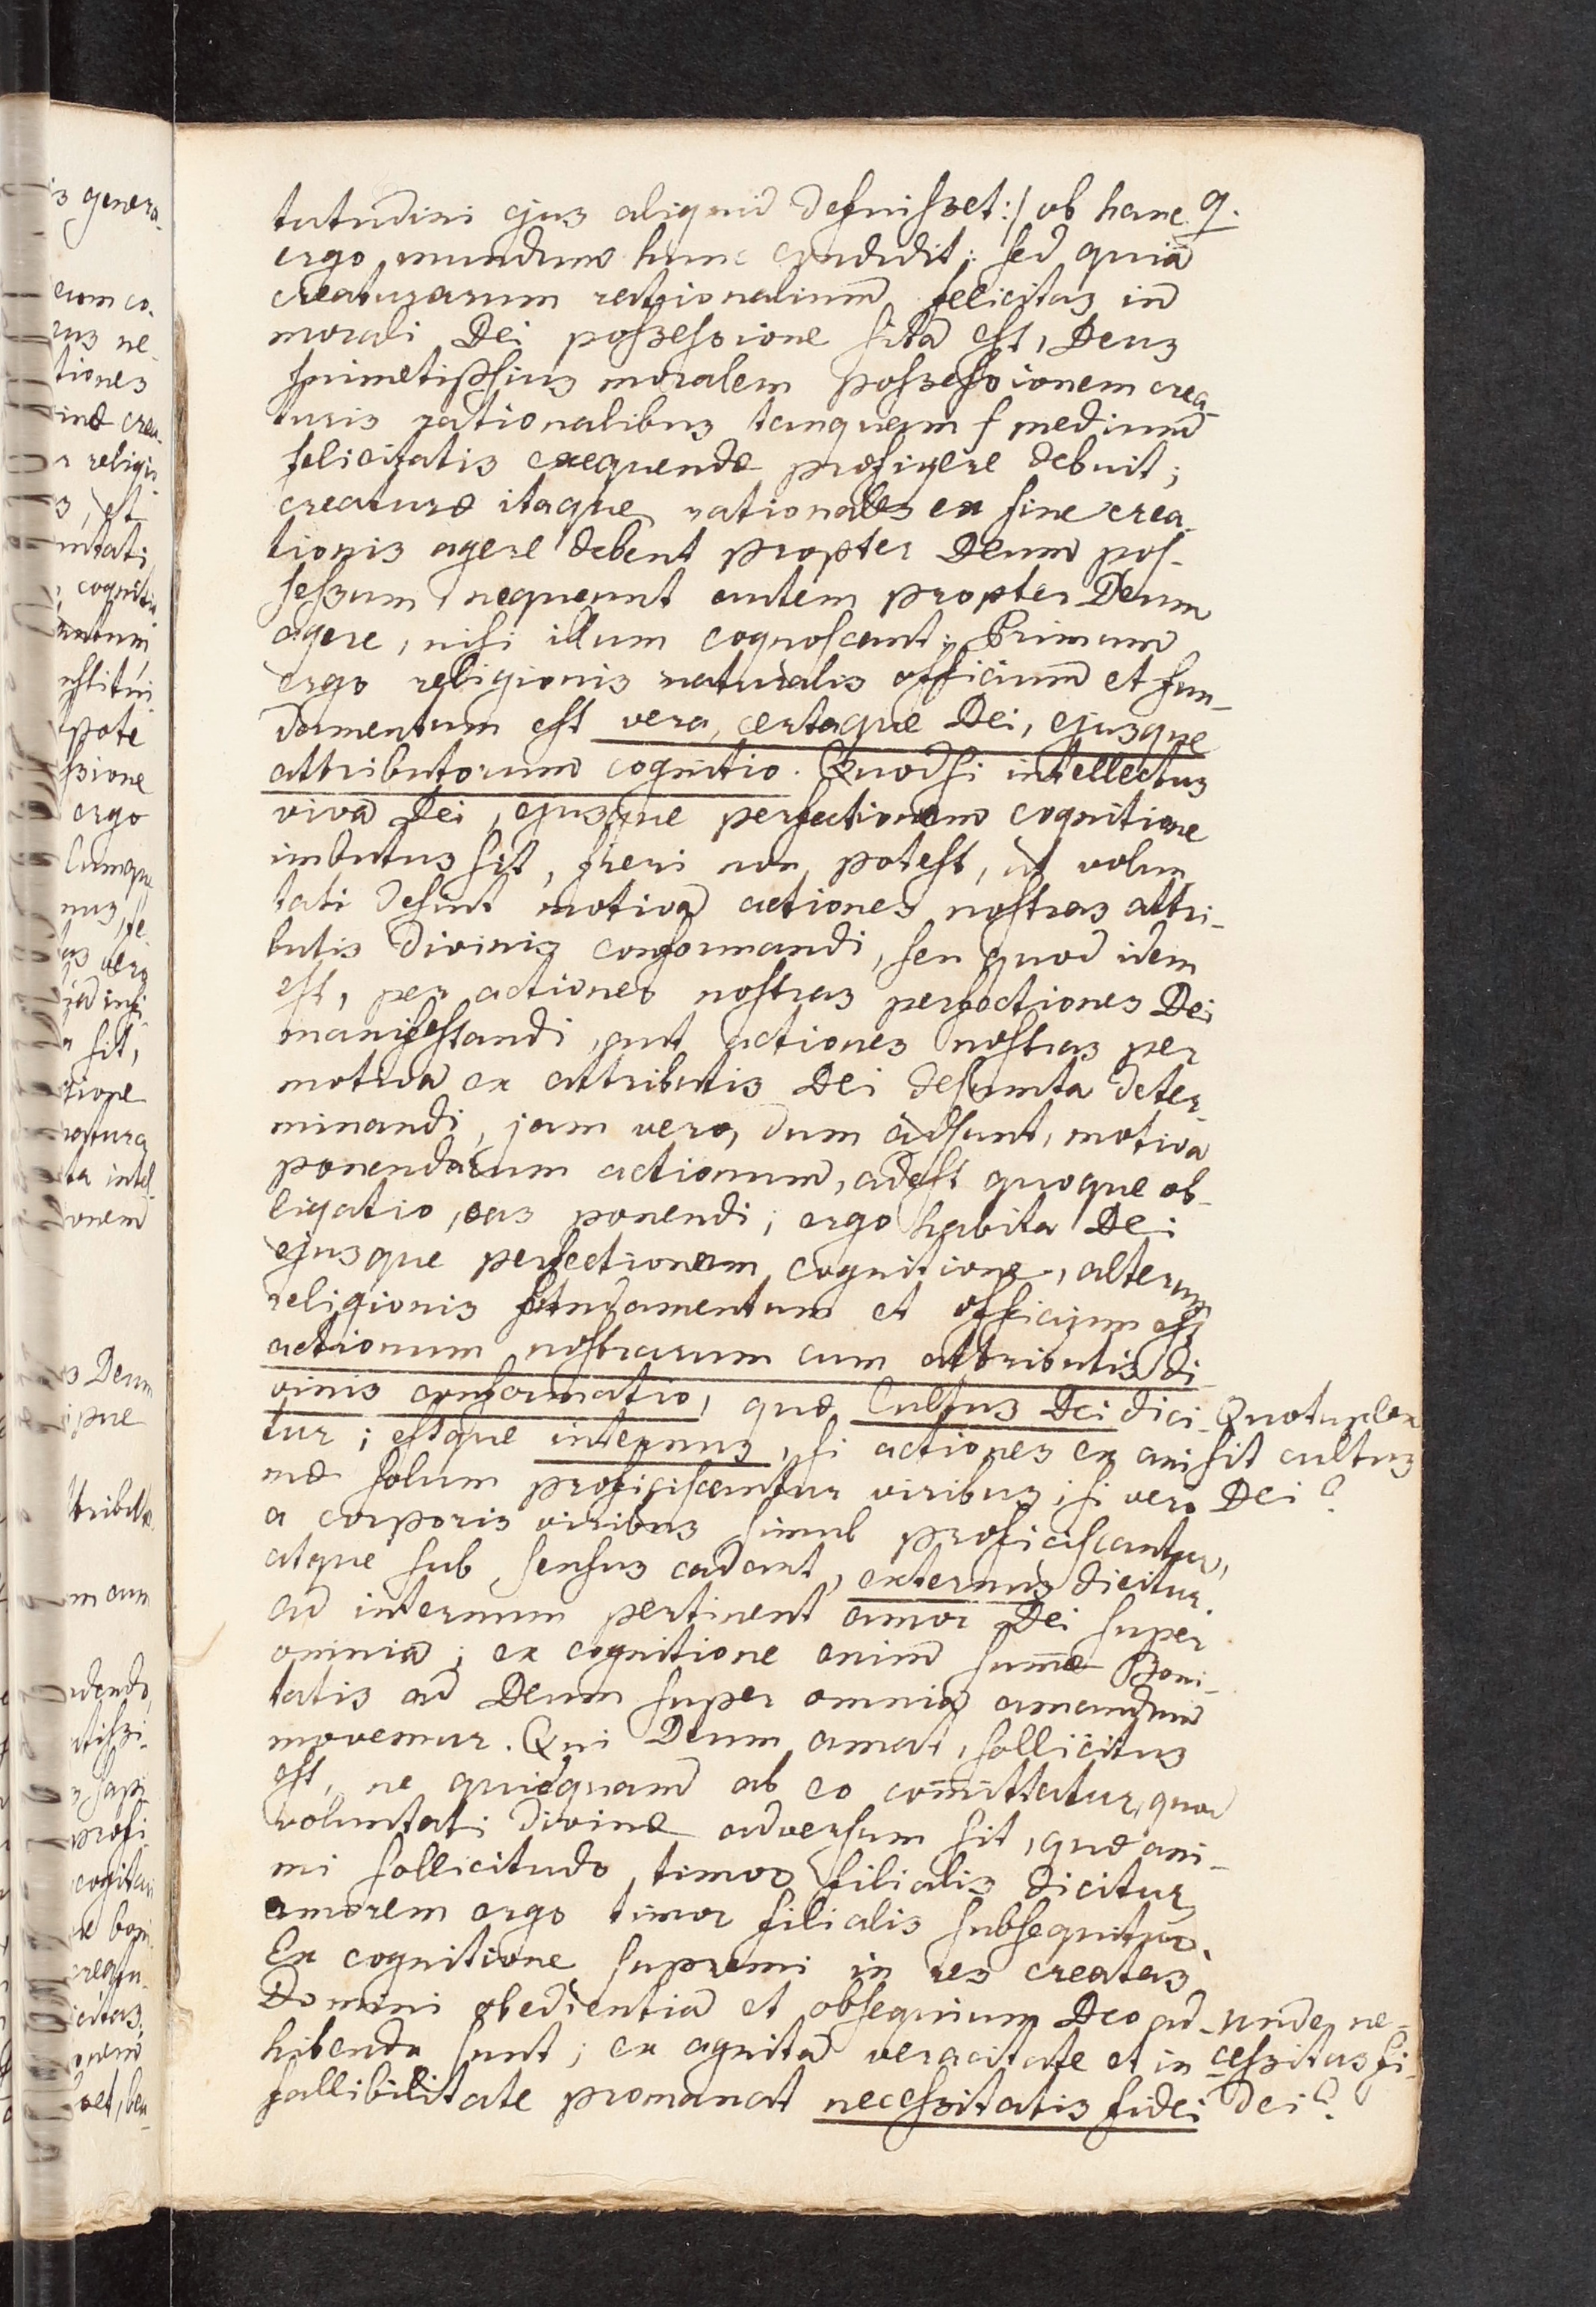 tutudini ejus aliquid defuisset:/ ob hanc 9.
ergo mundum hunc condidit; sed quia
creaturarum rationalium felicitas in
morali Dei possessione sita est, Deus
suimetipsius moralem possessionem crea-
turis rationalibus tanquam medium
felicitatis exequendæ præfigere debuit;
creaturæ itaque rationales ex fine crea-
tionis agere debent propter Deum pos-
sessum, nequeunt autem propter Deum
agere, nisi illum cognoscant; Primum
ergo religionis naturalis officium et fun-
damentum est vera, certaque Dei, ejusque
attributorum cognitio. Quodsi intellectus
viva Dei, ejusque perfectionem cognitione
imbutus sit, fieri non potest, ut volun
tati desint motiva actiones nostras attri-
butis divinis conformandi, seu quod idem
est, per actiones nostras perfectiones Dei
manifestandi, aut actiones nostras per
motiva ex attributis Dei desumta deter-
minandi, jam vero, dum adsunt, motiva
ponendarum actionum, adest quoque ob-
ligatio, eas ponendi; ergo habita Dei
ejusque perfectionem cognitione, alterum
religionis fundamentum et officium est
actionum nostrarum cum attributis di-
vinis conformatio, quæ Cultus Dei dici-
tur; estque internus, si actiones ex ani
mæ solum proficiscantur viribus; si vero
a corporis viribus simul proficiscantur,
atque sub sensus cadant, externus dicitur.
ad internum pertinent amor Dei super
omnia; ex cognitione enim sum̅æ Boni-
tatis ad Deum super omnia amandum
movemur. Qui Deum amat, sollicitus
est, ne quidquam ab eo com̅ittatur, quod
voluntati divinæ adversum sit, quæ ani-
mi sollicitudo, timor filialis dicitur,
amorem ergo timor filialis subsequitur.
Ex cognitione supremi in res creatas
Domini obedientia et obsequium Deo ad-
hibenda sunt; ex agnita veracitate et in
fallibilitate promanat necessitatis fidei
Quotuplex
sit cultus
Dei?
unde ne-
cessitas fi-
dei?